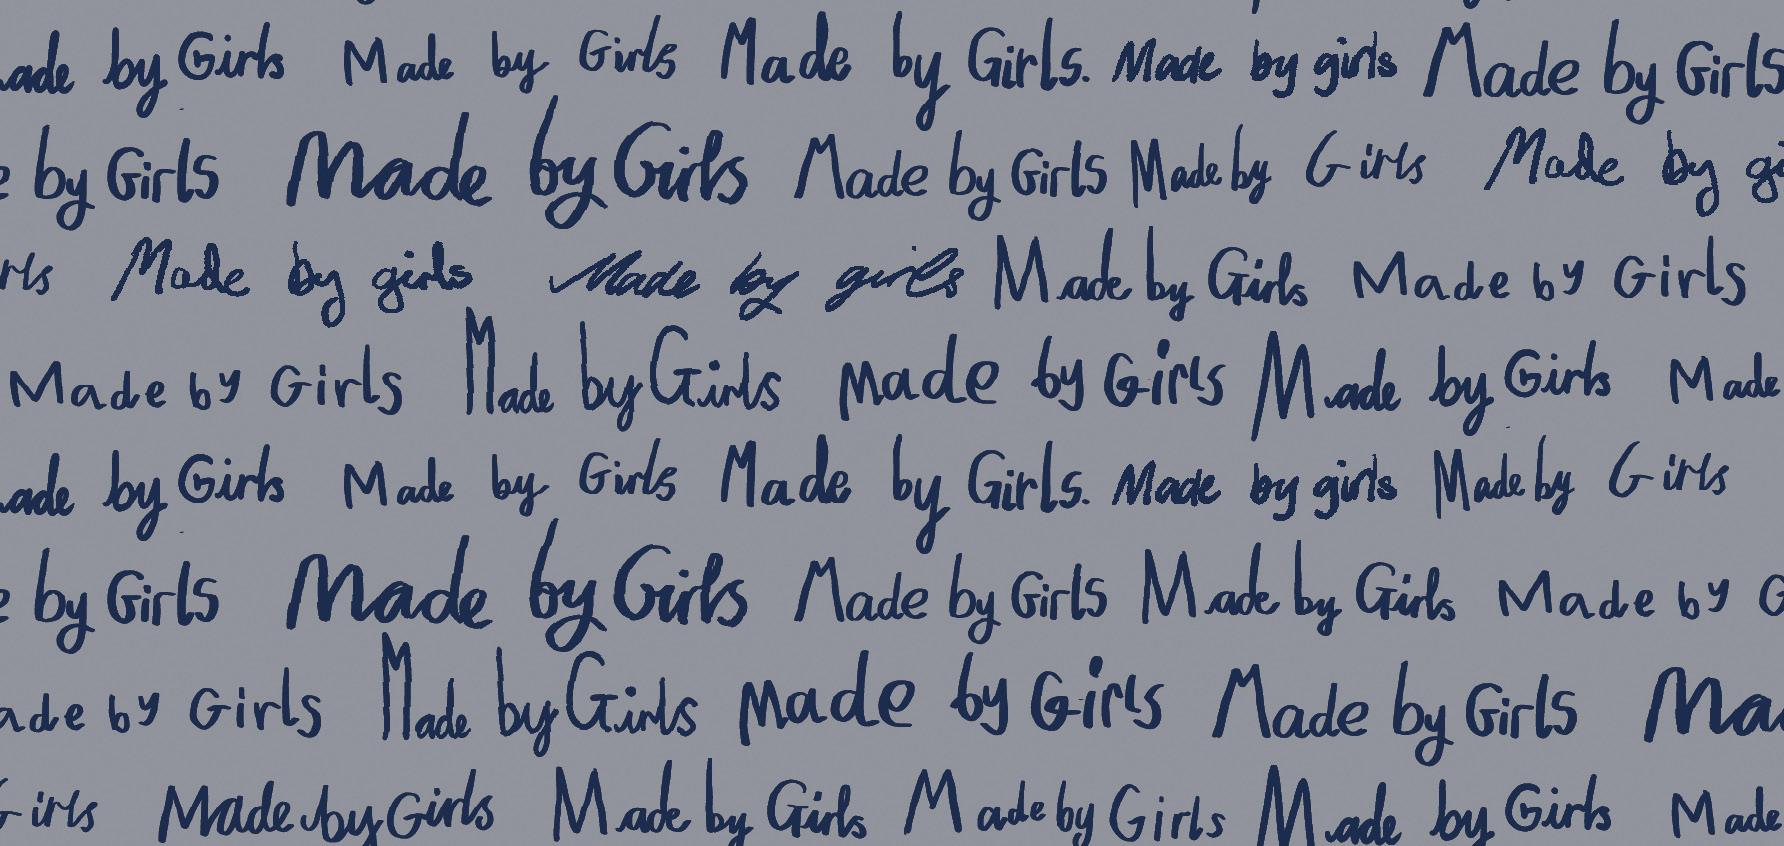 ade by Girls Made by Girls Made by Girls. Made by girls Made by Girls
e by Girls Made by Girls Made by Girls Made by Girls Made by gi
rls Made by girls Made by girls Made by Girls Made by Girls
Made by Girls Made by Girls made by Girls Made by Girls Made
ade by Girls Made by Girls Made by Girls. Made by girls Made by Girls
e by Girls Made by Girls Made by Girls Made by Girls Made by G
ade by Girls Made by Girls made by Girls Made by Girls Ma
Girls Made by Girls Made by Girls Made by Girls Made by Girls Made